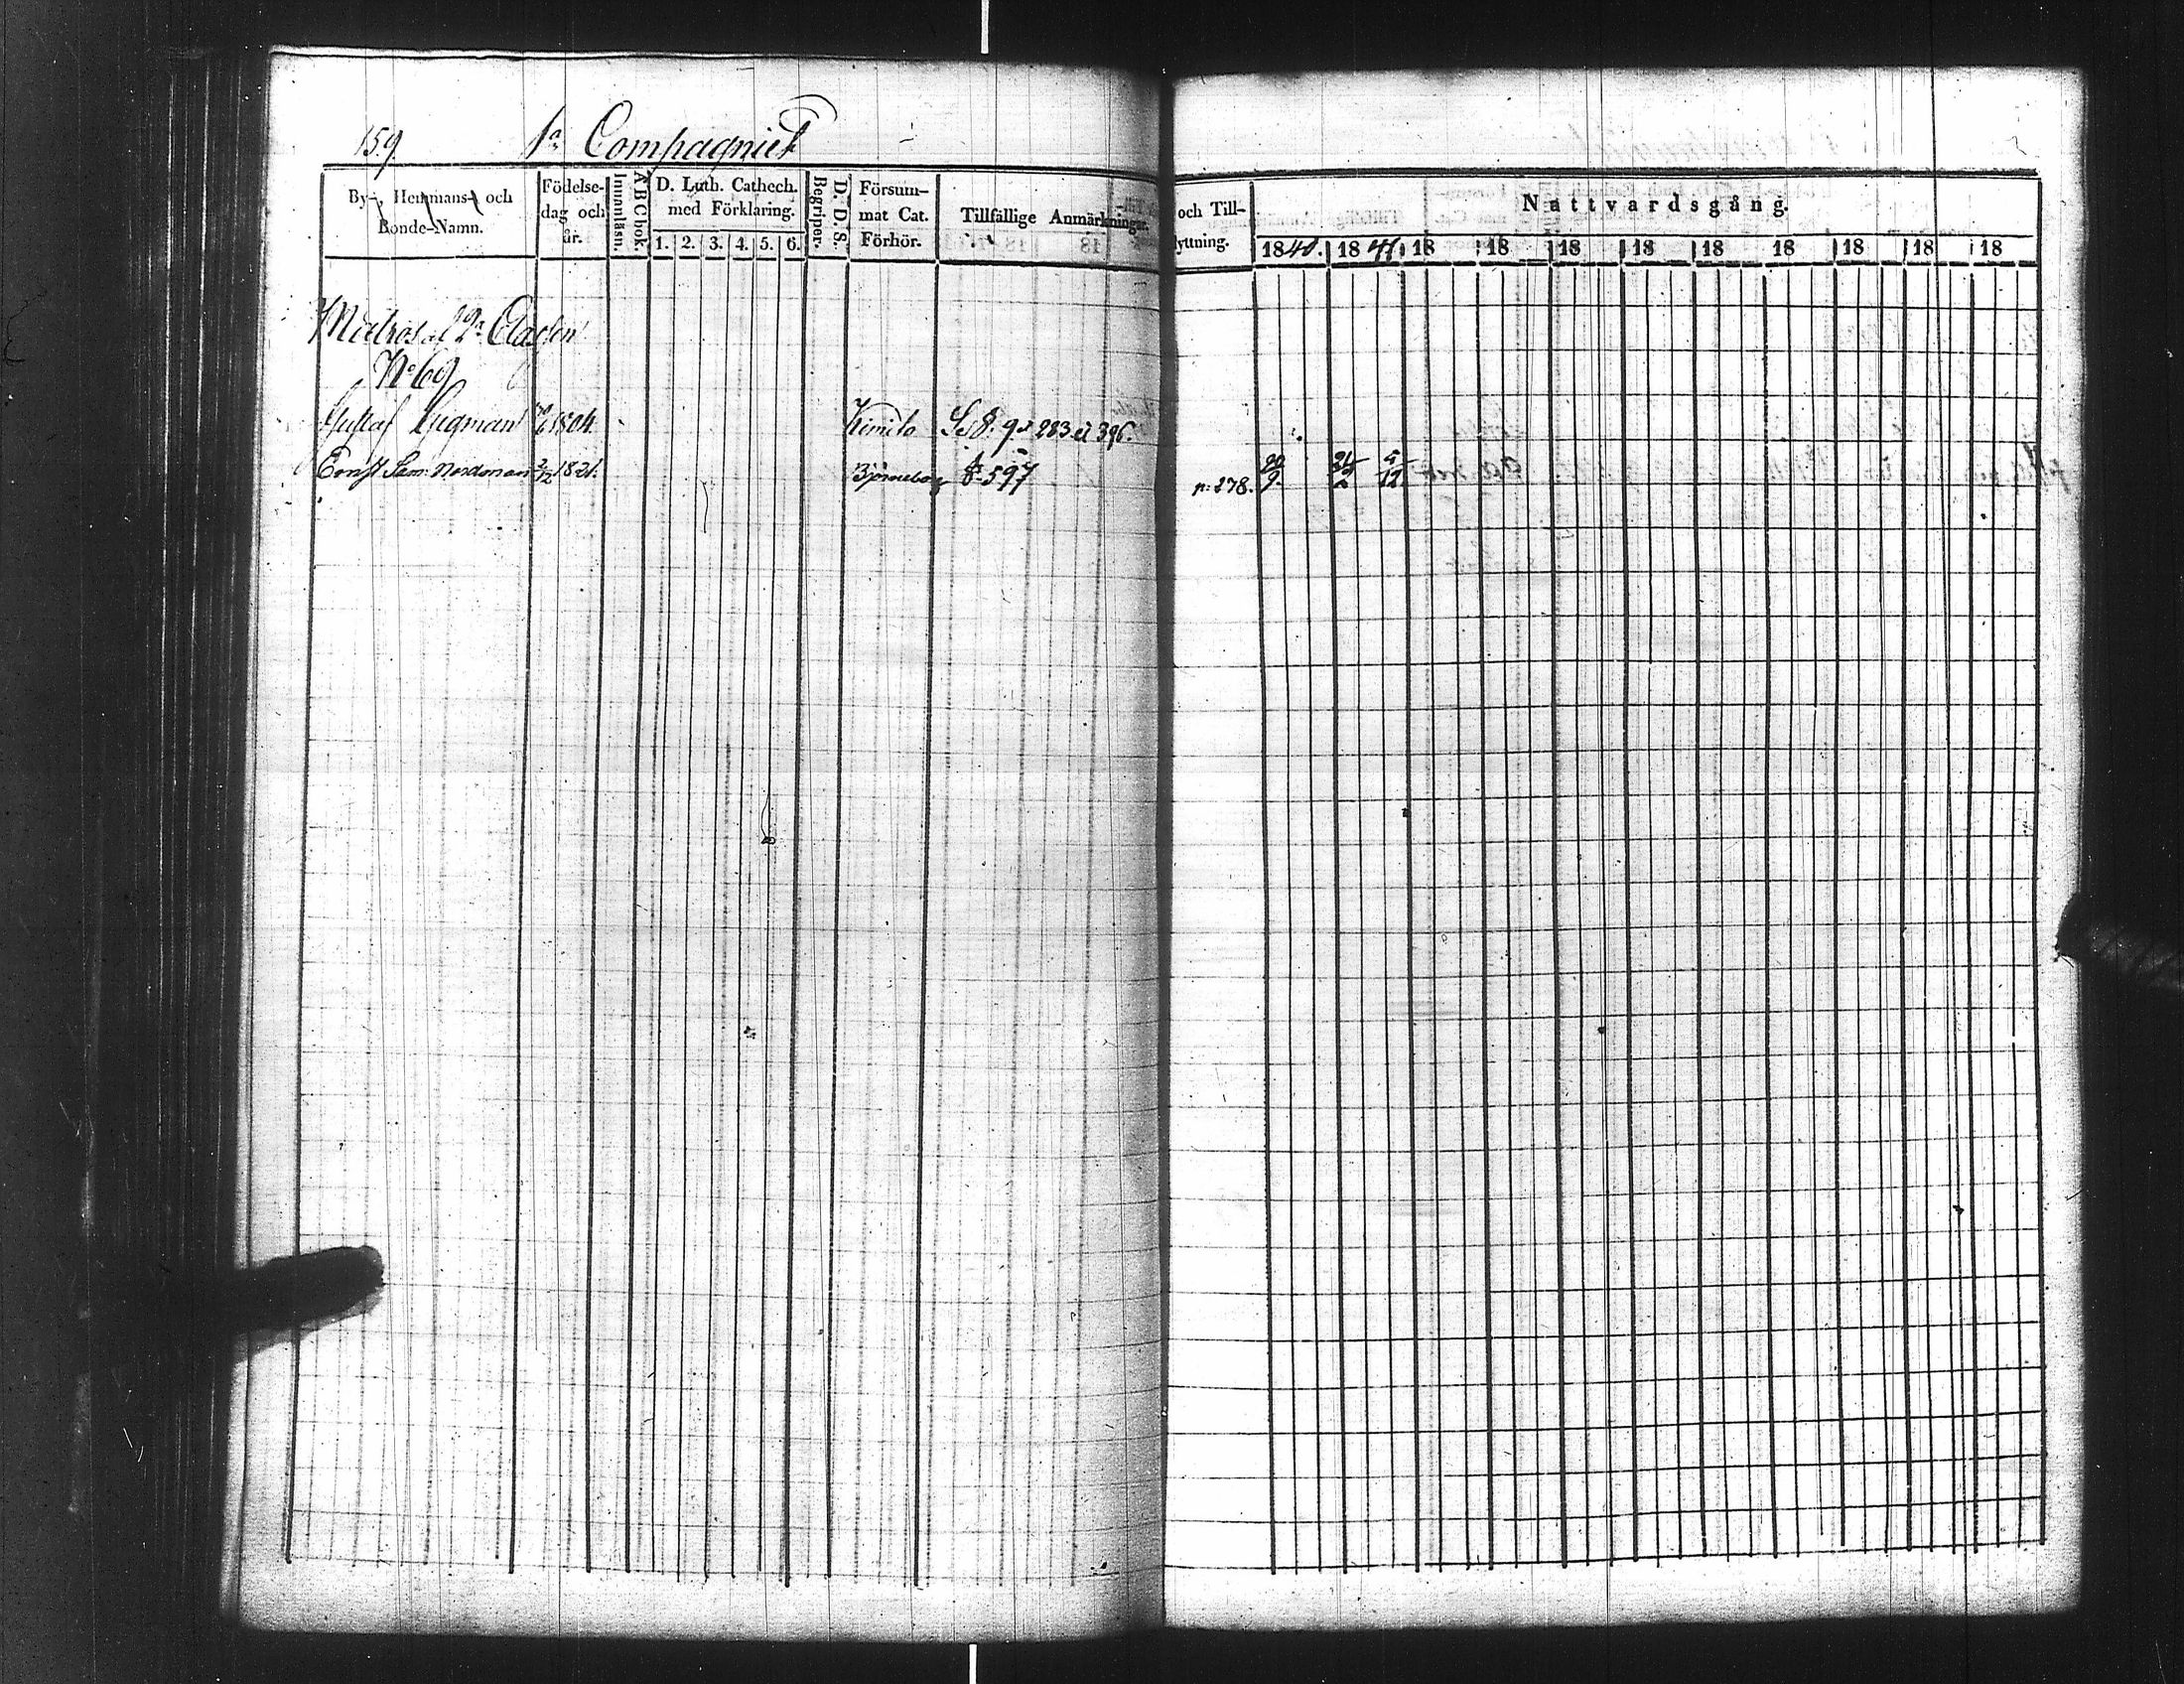 159. 1a Compagniet
By-, Hemmans- och Bonde-Namn.
Födelse-dag och år.
Innanläsn.
A B C bok.
D. Luth. Cathech. med Förklaring.
1. 2. 3. 4. 5. 6.
Begriper.
D. D. S.
Försum-mat Cat. Förhör.
Tillfällige Anmärkningar.
och Till-
yttning.
Nattvardsgång.
1840. 1841. 18 18 18 18 18 18 18 18 18
Matros af 2a Classen
No 69
Gustaf 1804. Kimito 283 396.
Ernst Sam: Nordman 2/12 1821. Björneborg 597 p: 278. 20/9. 5/12.